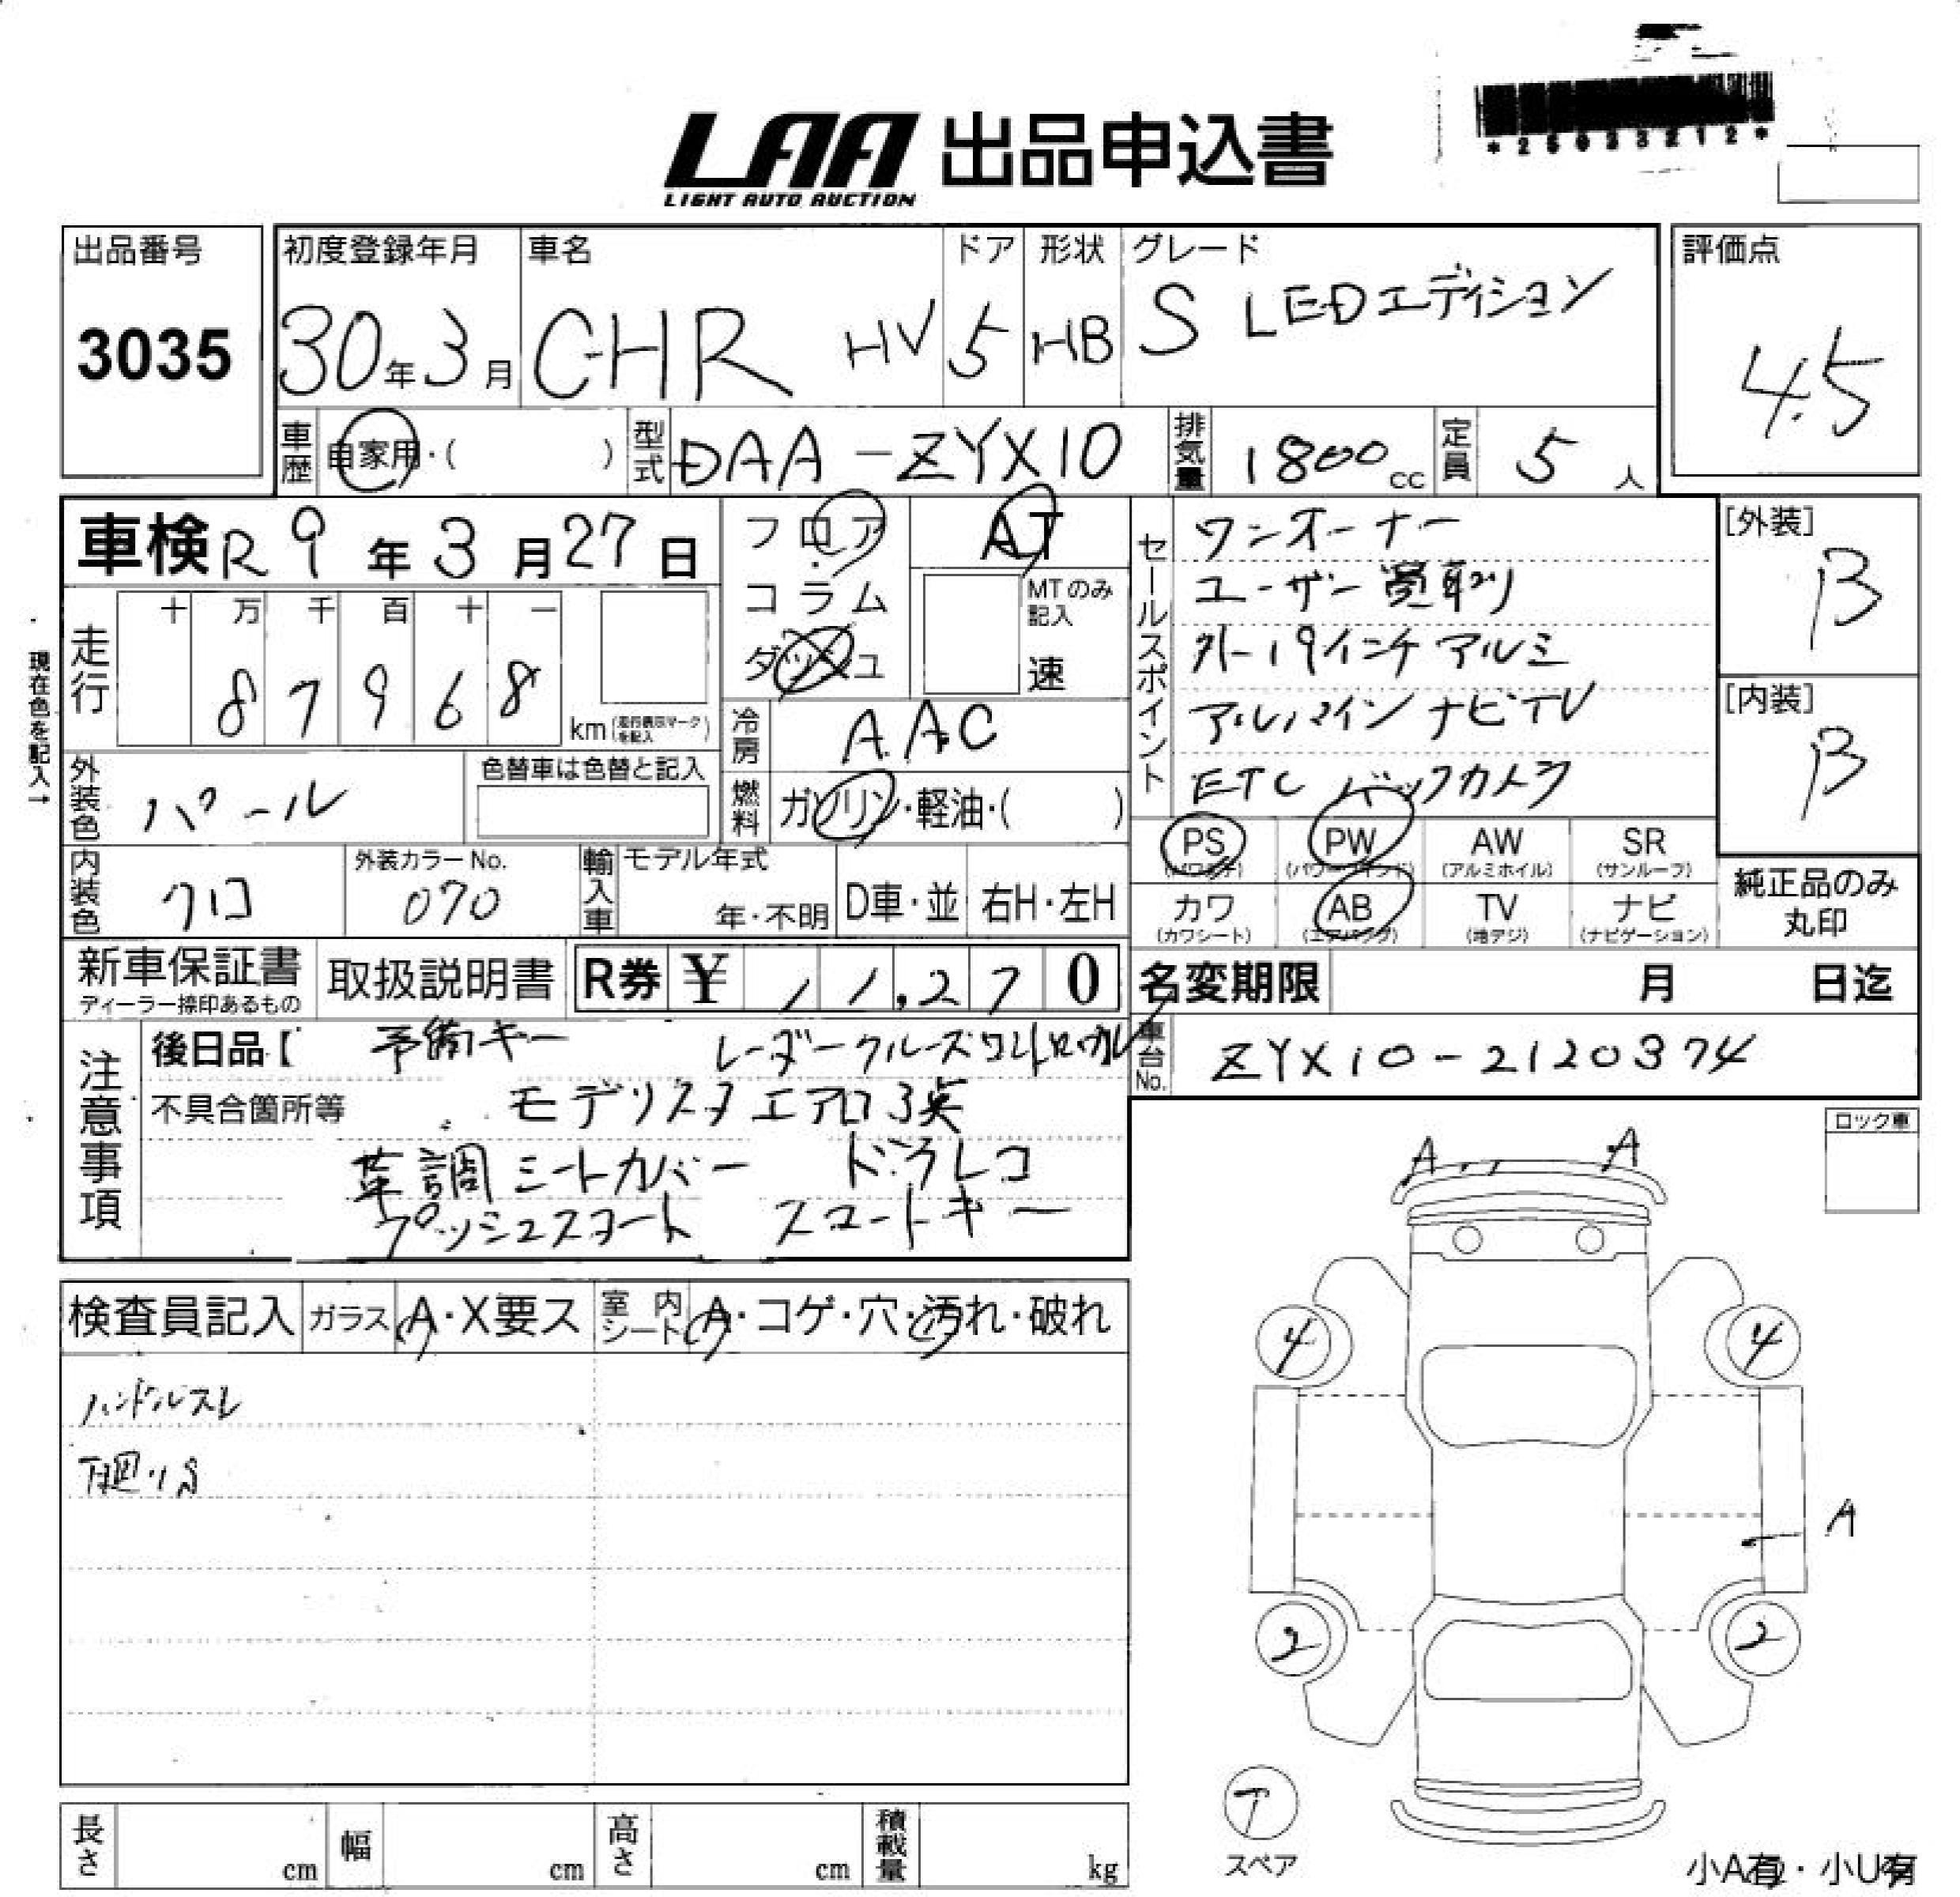 LAA 出品申込書
LIGHT AUTO AUCTION
*25023212*
出品番号
3035
初度登録年月
30年3月
車名
CHR HV
ドア
5
形状
HB
グレード
S LEDエディション
評価点
4.5
車歴 自家用・( )
型式 DAA-ZYX10
排気量 1800cc
定員 5人
車検 R9年3月27日
フロア
コラム
ダッシュ
AT
MTのみ記入
速
セールスポイント
ワンオーナー
ユーザー買取り
外-19インチアルミ
アルパイン ナビTV
ETC バックカメラ
[外装]
B
[内装]
B
現在色を記入→
走行
十 万 千 百 十 一
8 7 9 6 8
km(走行表示マークを記入)
冷房 AAC
燃料 ガソリン・軽油・( )
外装色 パール
色替車は色替と記入
内装色 クロ
外装カラーNo.
070
輸入車
モデル年式
年・不明
D車・並
右H・左H
PS PW AW SR
(パワステ) (パワーウインド) (アルミホイル) (サンルーフ)
カワ AB TV ナビ
(カワシート) (エアバッグ) (地デジ) (ナビゲーション)
純正品のみ
丸印
新車保証書
ディーラー捺印あるもの
取扱説明書
R券 ¥ 11,270
名変期限 月 日迄
車台No. ZYX10-2120374
注意事項
後日品【 予備キー レーダークルーズコントロール
不具合箇所等 モデリスタエアロ3点
革調シートカバー ドラレコ
プッシュスタート スマートキー
ロック車
A A
検査員記入
ガラス A・X要ス
室内シート A・コゲ・穴・汚れ・破れ
ハンドルスレ
下廻りS
4 4
A
2 2
T
スペア
長さ cm
幅 cm
高さ cm
積載量 kg
小A有・小U有